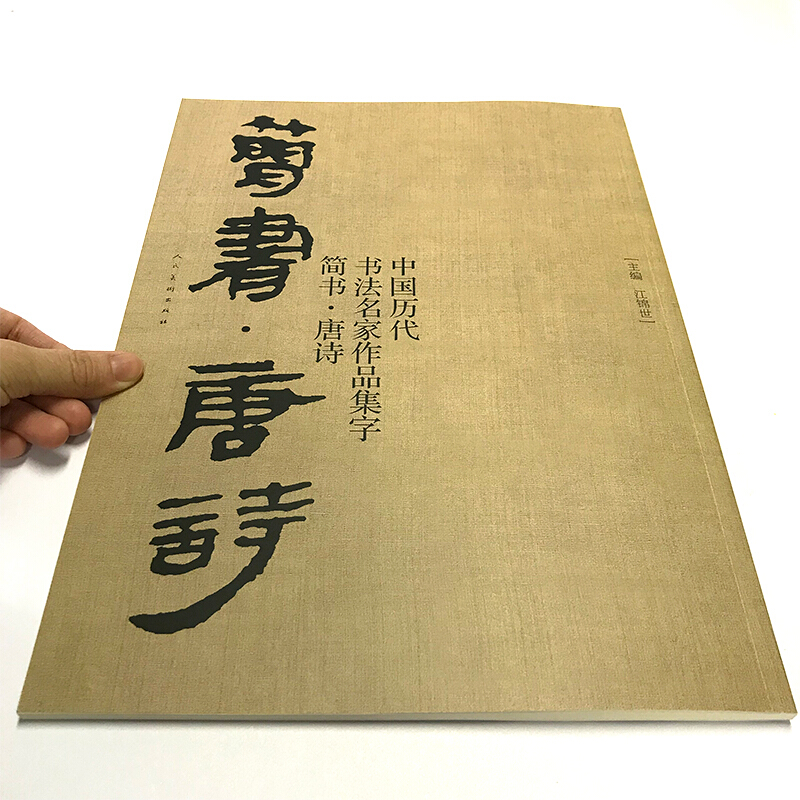 [主编 江锦世]
中国历代
书法名家作品集字
简书·唐诗
簡書·唐詩
人民美術出版社